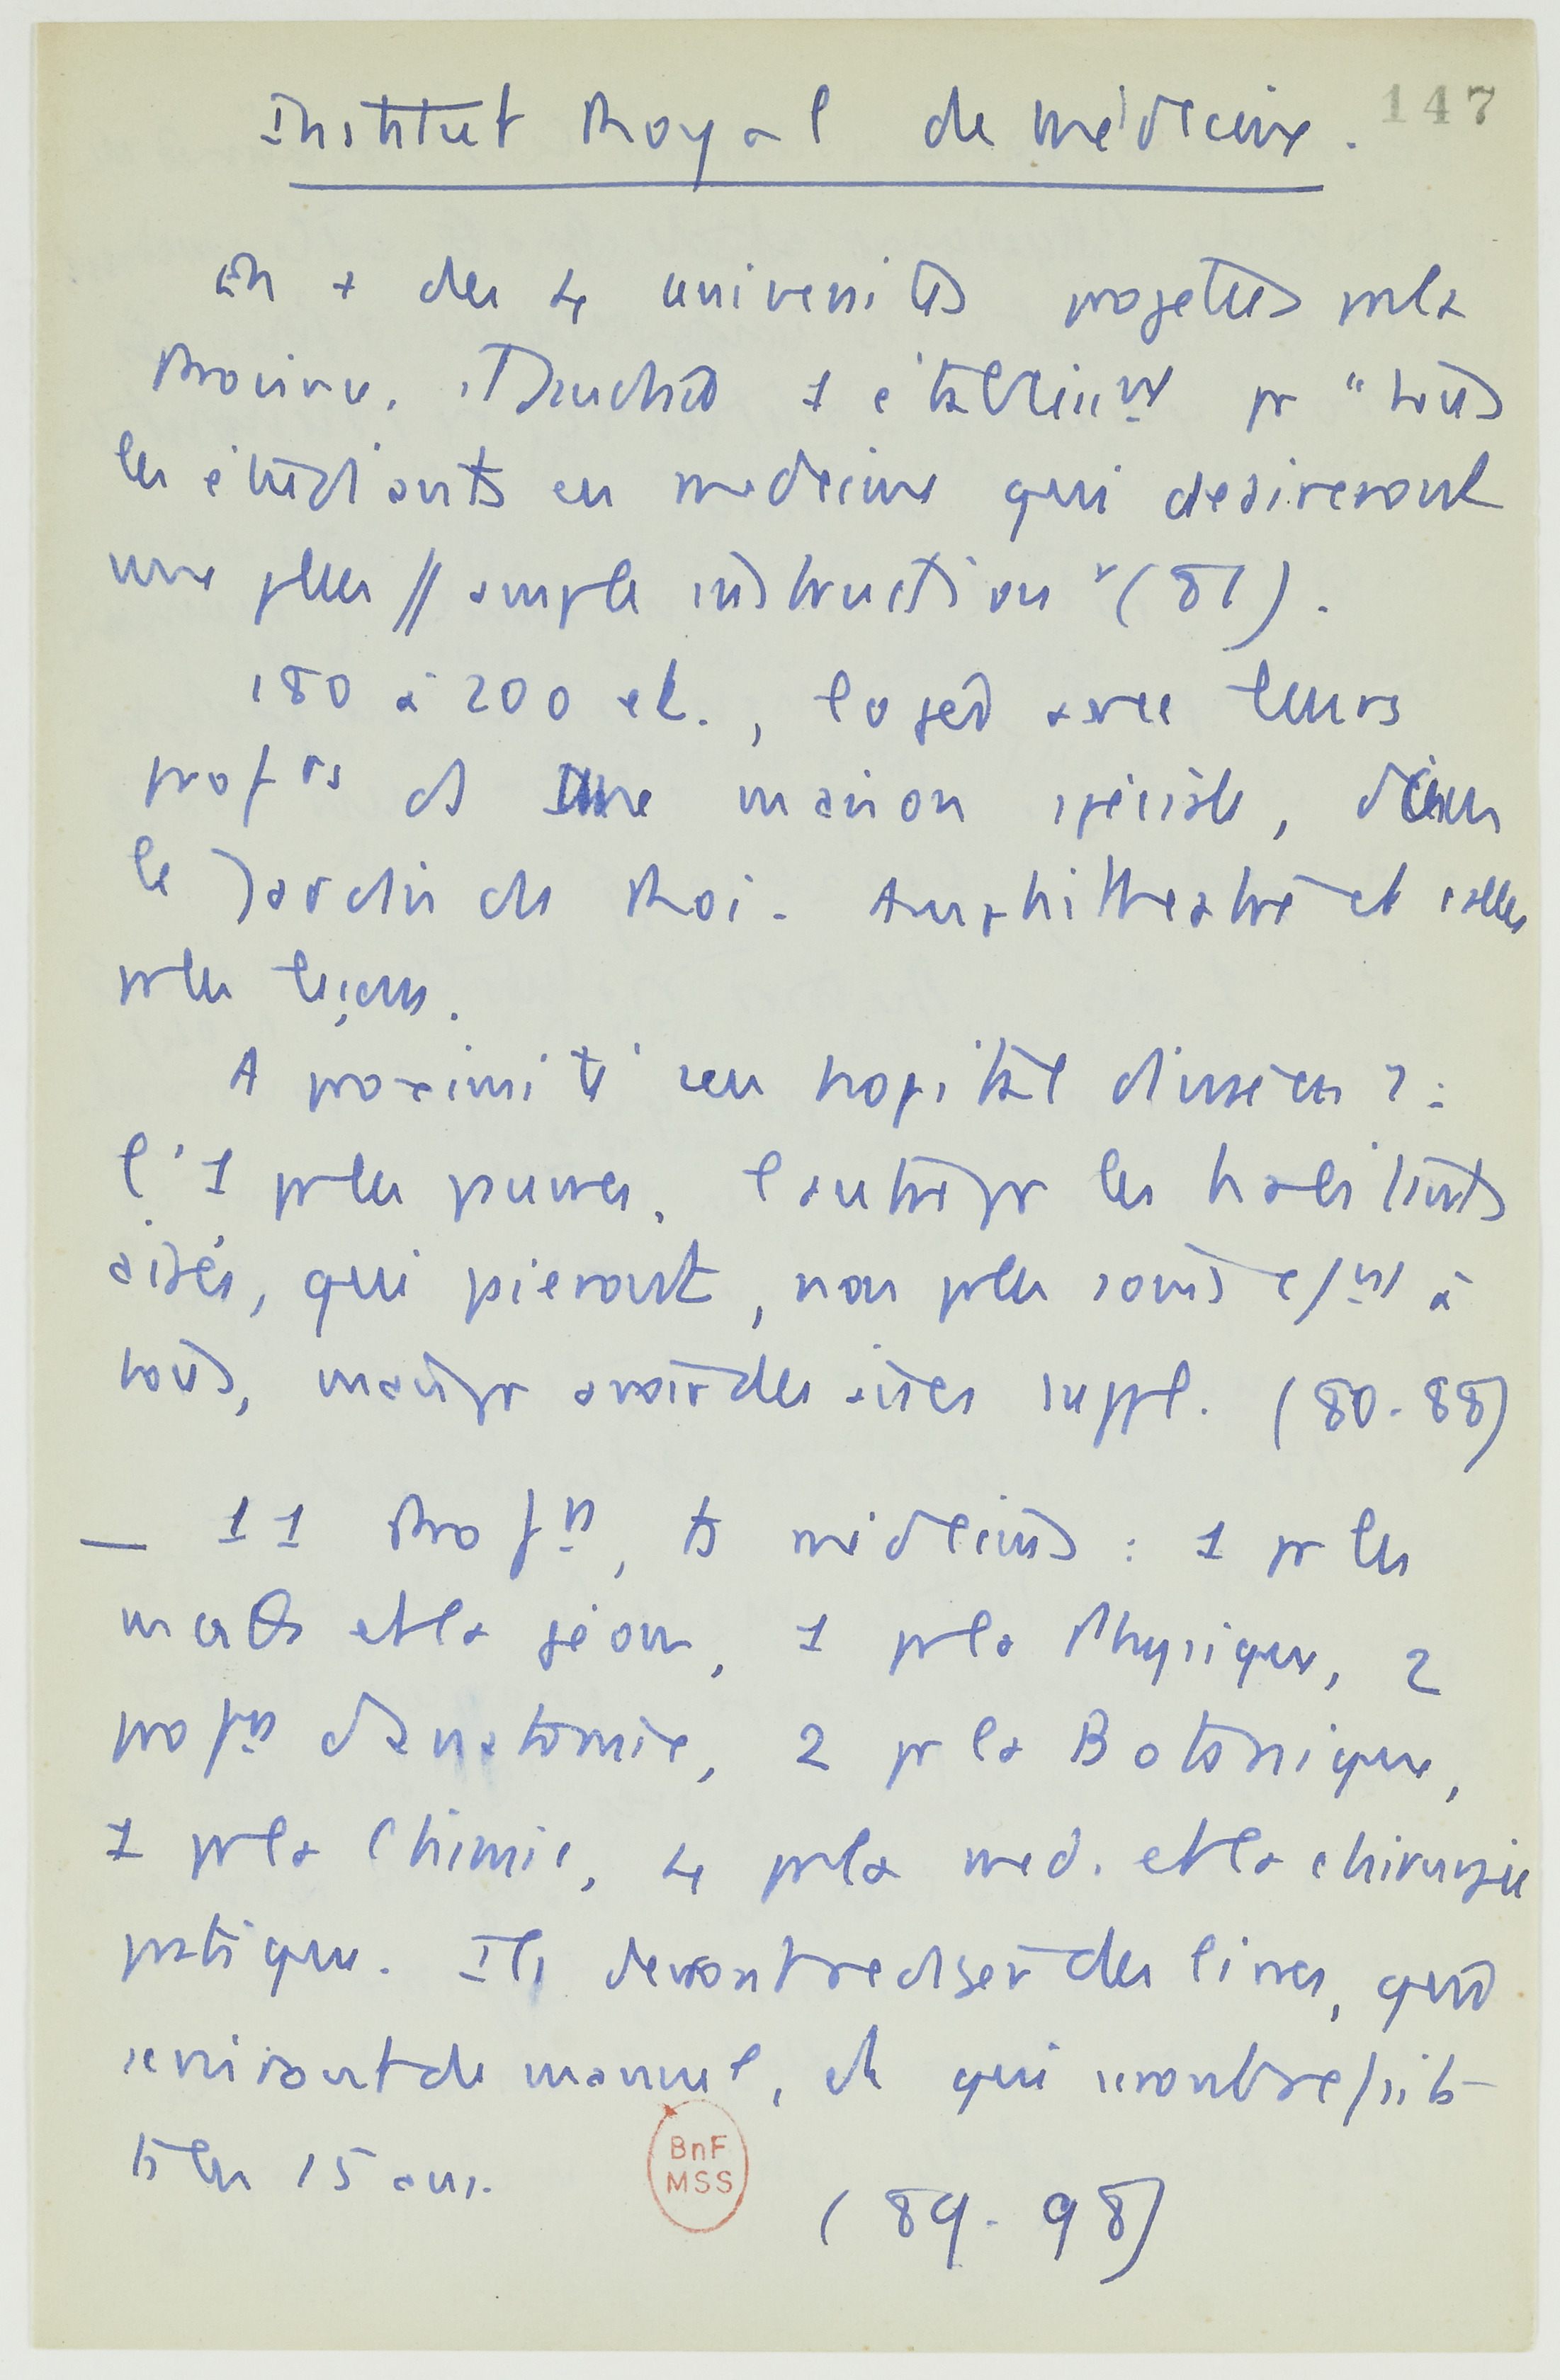 Institut Royal de médecine.
147
En + des 4 universités projetées pr la
Province, 1 établissmt pr "tous
les étudiants en medecine qui desireront
une plus // ample instruction" (81).
180 à 200 el., logés avec leurs
profrs ds une maison spéciale, dans
le Jardin du Roi. Amphitheatre et salles
pr les leçons.
A proximité un hopital diviser en 2 :
l'1 pr les pauvres, l'autre pr les habitants
aisés, qui paieront, non pr les soins c/ms à
tous, mais pr avoir des aises suppl. (80-88)
— 11 Profrs, ts médecins : 1 pr les
math et la géom, 1 pr la Physique, 2
profrs d'anatomie, 2 pr la Botanique,
1 pr la Chimie, 4 pr la med. et la chirurgie
pratique. Ils devront rediger des livres, qui
serviront de manuel, et qui seront
ts les 15 ans.
(89-98)
BnF
MSS